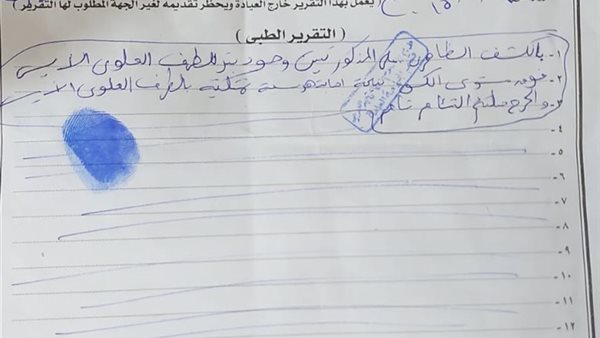 يعمل بهذا التقرير خارج العيادة ويحظر تقديمه لغير الجهة المطلوب لها التقرير )
( التقرير الطبى )
١- بالكشف الظاهرى على المذكور تبين وجود بتر للطرف العلوى الأيسر
٢- فوق مستوى الكوع نتيجة إصابته بالطرف العلوى
٣- والجرح ملتئم التئام تام
٤-
٥-
٦-
٧-
٨-
٩-
١٠-
١١-
١٢-